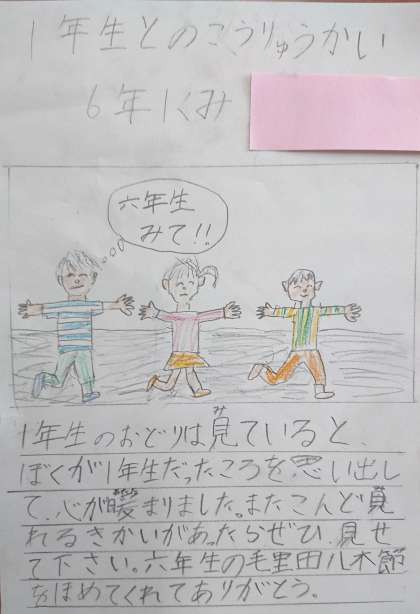 1年生とのこうりゅうかい
6年1くみ
六年生
みて!!
1年生のおどりは見ていると、
み
ぼくが1年生だったころを思い出し
て、心が暖まりました。またこんど見
れるきかいがあったらぜひ、見せ
て下さい。六年生の毛里田八木節
をほめてくれてありがとう。